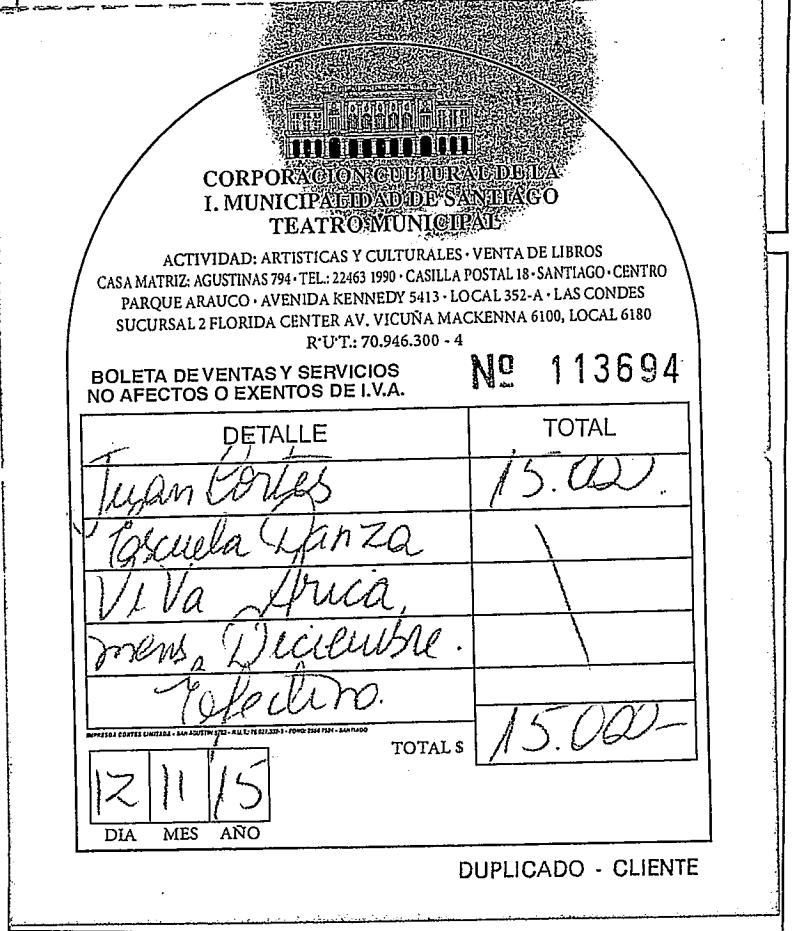 CORPORACION CULTURAL DE LA
I. MUNICIPALIDAD DE SANTIAGO
TEATRO MUNICIPAL
ACTIVIDAD: ARTISTICAS Y CULTURALES · VENTA DE LIBROS
CASA MATRIZ: AGUSTINAS 794 · TEL.: 22463 1990 · CASILLA POSTAL 18 · SANTIAGO · CENTRO
PARQUE ARAUCO · AVENIDA KENNEDY 5413 · LOCAL 352-A · LAS CONDES
SUCURSAL 2 FLORIDA CENTER AV. VICUÑA MACKENNA 6100, LOCAL 6180
R·U·T.: 70.946.300 - 4
BOLETA DE VENTAS Y SERVICIOS
NO AFECTOS O EXENTOS DE I.V.A.
Nº 113694
DETALLE TOTAL
Juan Cortés 15.000.
Escuela Danza
ViVa Arica,
mens. Diciembre.
Efectivo.
IMPRESOS CORTES LIMITADA - SAN AGUSTIN - SANTIAGO
TOTAL $ 15.000-
12 11 15
DIA MES AÑO
DUPLICADO - CLIENTE